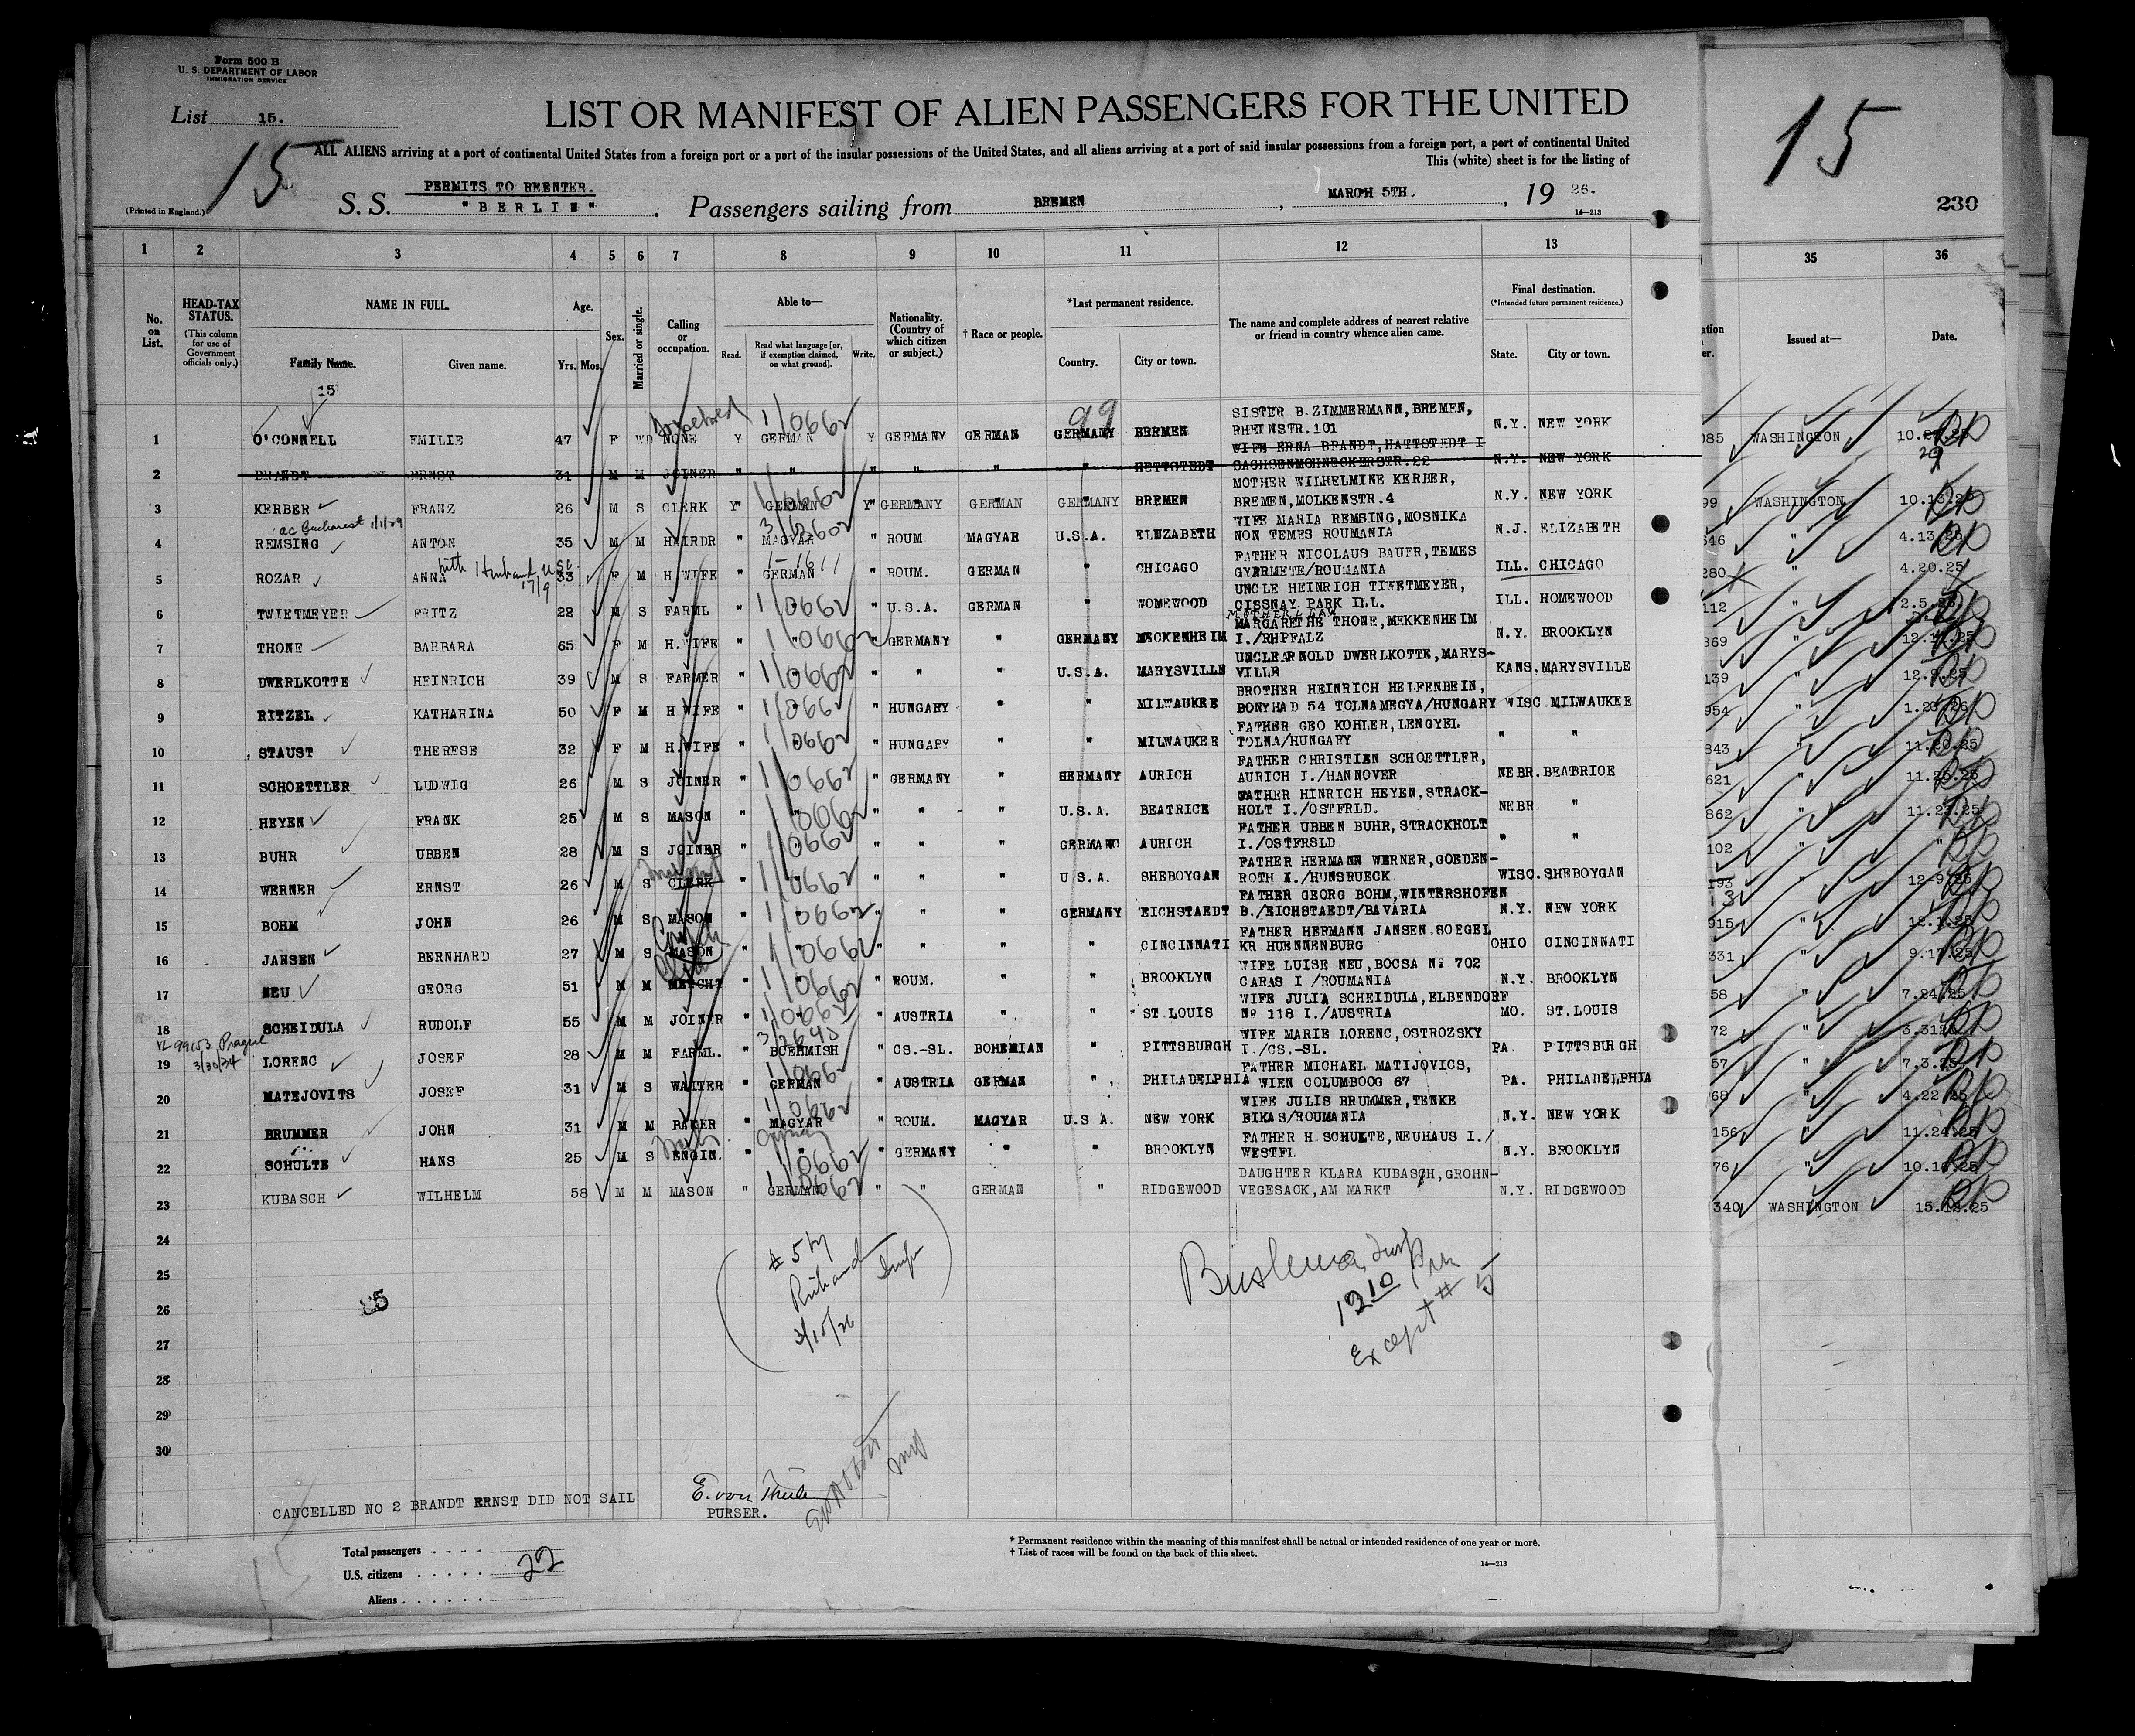 Form 500 B
U. S. DEPARTMENT OF LABOR
IMMIGRATION SERVICE
List 15.
15
LIST OR MANIFEST OF ALIEN PASSENGERS FOR THE UNITED
15
ALL ALIENS arriving at a port of continental United States from a foreign port or a part of the insular possessions of the United States, and all aliens arriving at a port of said insular possessions from a foreign port, a port of continental United
This (white) sheet is for the listing of
PERMITS TO REENTER.
(Printed in England.)
S. S. "BERLIN". Passengers sailing from BREMEN, MARCH 5TH., 19 26.
14—213
230
1 2 3 4 5 6 7 8 9 10 11 12 13 35 36
No. on List.
HEAD-TAX STATUS.
(This column for use of Government officials only.)
NAME IN FULL.
Family Name. Given name.
15
Age.
Yrs. Mos.
Sex.
Married or single.
Calling or occupation.
Able to—
Read. Read what language [or, if exemption claimed, on what ground]. Write.
Nationality. (Country of which citizen or subject.)
† Race or people.
*Last permanent residence.
Country. City or town.
The name and complete address of nearest relative or friend in country whence alien came.
Final destination.
(*Intended future permanent residence.)
State. City or town.
Issued at—
Date.
99
SISTER B. ZIMMERMANN, BREMEN,
1 O'CONNELL EMILIE 47 F WD NONE Y GERMAN Y GERMANY GERMAN GERMANY BREMEN RHEINSTR.101 N.Y. NEW YORK 085 WASHINGTON
WIFE ERNA BRANDT, HATTSTEDT I
2 BRANDT ERNST 31 M M JOINER " " " " " " HETTSTEDT SACHSENMOHNECKERSTR.22 N.Y. NEW YORK
MOTHER WILHELMINE KERBER,
3 KERBER FRANZ 26 M S CLERK Y" GERMAN Y" GERMANY GERMAN GERMANY BREMEN BREMEN, MOLKENSTR.4 N.Y. NEW YORK 99 WASHINGTON
ac Bucharest 1/1/29
WIFE MARIA REMSING, MOSNIKA
4 REMSING ANTON 35 M M HAIRDR " MAGYAR " ROUM MAGYAR U.S.A. ELNZABETH NON TEMES ROUMANIA N.J. ELIZABETH 646 " 4.13.25
1-1611
FATHER NICOLAUS BAUER, TEMES
5 ROZAR ANNA 33 F M H WIFE " GERMAN " ROUM. GERMAN " CHICAGO GYARMETE/ROUMANIA ILL. CHICAGO 280 " 4.20.25
UNCLE HEINRICH TIWETMEYER,
6 TWIETMEYER FRITZ 22 M S FARML " " " U.S.A. GERMAN " WOMEWOOD CISSNAY PARK ILL. ILL. HOMEWOOD 112 "
MARGARETHE THONE, MEKKENHEIM
7 THONE BARBARA 65 F M H.WIFE " " " GERMANY " GERMANY MECKENHEIM I./RHPFALZ N.Y. BROOKLYN 869 "
UNCLEARNOLD DWERLKOTTE, MARYS-
8 DWERLKOTTE HEINRICH 39 M S FARMER " " " " " U.S.A. MARYSVILLE VILLE KANS. MARYSVILLE 139 " 12.9.25
BROTHER HEINRICH HELFENBEIN,
9 RITZEL KATHARINA 50 F M H WIFE " " " HUNGARY " " MILWAUKEE BONYHAD 54 TOLNAMEGYA/HUNGARY WISC MILWAUKEE 954 "
FATHER GEO KOHLER, LENGYEL
10 STAUST THERESE 32 F M H.WIFE " " " HUNGARY " " MILWAUKER TOLNA/HUNGARY " " 843 " 11.20.25
FATHER CHRISTIEN SCHOETTLER,
11 SCHOETTLER LUDWIG 26 M S JOINER " " " GERMANY " GERMANY AURICH AURICH I./HANNOVER NEBR. BEATRICE 621 "
GATHER HINRICH HEYEN, STRACK-
12 HEYEN FRANK 25 M S MASON " " " " " U.S.A. BEATRICE HOLT I./OSTFRLD. NEBR. " 862 "
FATHER UBBEN BUHR, STRACKHOLT
13 BUHR UBBEN 28 M S JOINER " " " " " GERMANO AURICH I./OSTFRSLD " " 102 "
FATHER HERMANN WERNER, GOEDEN-
14 WERNER ERNST 26 M S CLERK " " " " " U.S.A. SHEBOYGAN ROTH I./HUNSRUECK WISC. SHEBOYGAN 193 " 12-9.25
FATHER GEORG BOHM, WINTERSHOFEN
15 BOHM JOHN 26 M S MASON " " " " " GERMANY EICHSTAEDT B./EICHSTAEDT/BAVARIA N.Y. NEW YORK 915 " 12.1.25
FATHER HERMANN JANSEN, SOEGEL
16 JANSEN BERNHARD 27 M S MASON " " " " " " CINCINNATI KR HUENNENBURG OHIO CINCINNATI 331 " 9.17.25
WIFE LUISE NEU, BOCSA No 702
17 NEU GEORG 51 M M MERCHT " " " ROUM. " " BROOKLYN CARAS I /ROUMANIA N.Y. BROOKLYN 58 " 7.24.25
WIFE JULIA SCHEIDULA, ELBENDORF
18 SCHEIDULA RUDOLF 55 M M JOINER " " " AUSTRIA " " ST.LOUIS No 118 I./AUSTRIA MO. ST.LOUIS 72 "
VL 99653 Prague
3/30/34
WIFE MARIE LORENC, OSTROZSKY
19 LORENC JOSEF 28 M M FARML. " BOEHMISH " CS.-SL. BOHEMIAN " PITTSBURGH I./CS.-SL. PA. PITTSBURGH 57 " 7.3.25
FATHER MICHAEL MATIJOVICS,
20 MATEJOVITS JOSEF 31 M S WAITER " GERMAN " AUSTRIA GERMAN " PHILADELPHIA WIEN COLUMBOOG 67 PA. PHILADELPHIA 68 " 4.22.25
WIFE JULIS BRUMMER, TENKE
21 BRUMMER JOHN 31 M M BAKER " MAGYAR " ROUM. MAGYAR U.S A. NEW YORK BIKAS/ROUMANIA N.Y. NEW YORK 156 " 11.24.25
FATHER H. SCHULTE, NEUHAUS I./
22 SCHULTE HANS 25 M S ENGIN. " " " GERMANY " " BROOKLYN WESTFL N.Y. BROOKLYN 76 "
DAUGHTER KLARA KUBASCH, GROHN-
23 KUBASCH WILHELM 58 M M MASON " GERMAN " " GERMAN " RIDGEWOOD VEGESACK, AM MARKT N.Y. RIDGEWOOD 340 WASHINGTON
24
25
26
27
28
29
30
# 5 by
3/15/26
12 10 PM
Except # 5
CANCELLED NO 2 BRANDT ERNST DID NOT SAIL
E. von Thule
PURSER.
Total passengers
U.S. citizens 22
Aliens
* Permanent residence within the meaning of this manifest shall be actual or intended residence of one year or more.
† List of races will be found on the back of this sheet.
14—213